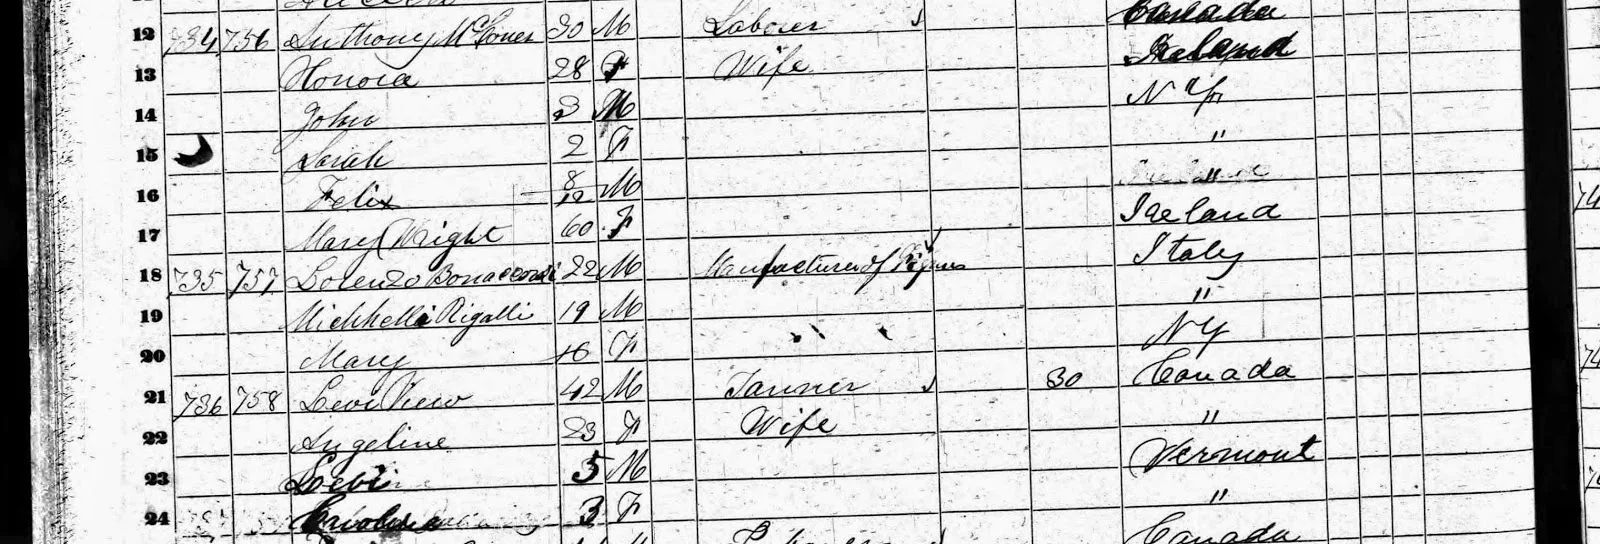 Canada
12 734 756 Anthony McGover 30 M Laborer Ireland
13 Honora 28 F Wife
14 John 3 M N Yr
15 Sarah 2 F "
16 Felix 8/12 M "
17 Mary Wright 60 F Ireland
18 735 757 Lorenzo Bonaccorsi 22 M Manufacturer of Figures Italy
19 Michhelli Rigalli 19 M "
20 Mary 16 F NY
21 736 758 Levi View 42 M Tanner 30 Canada
22 Angeline 23 F Wife "
23 5 M Vermont
24 3 F "
Canada